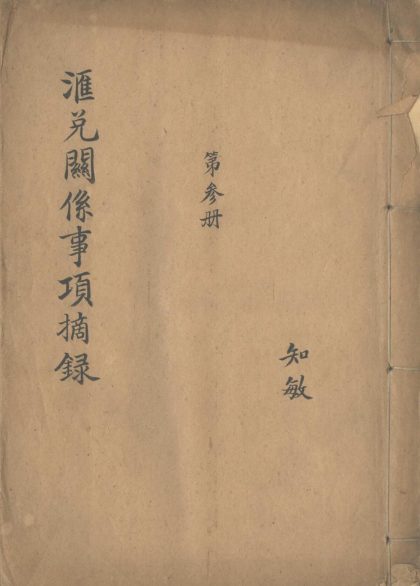 知敏
第参册
滙兑關係事項摘録